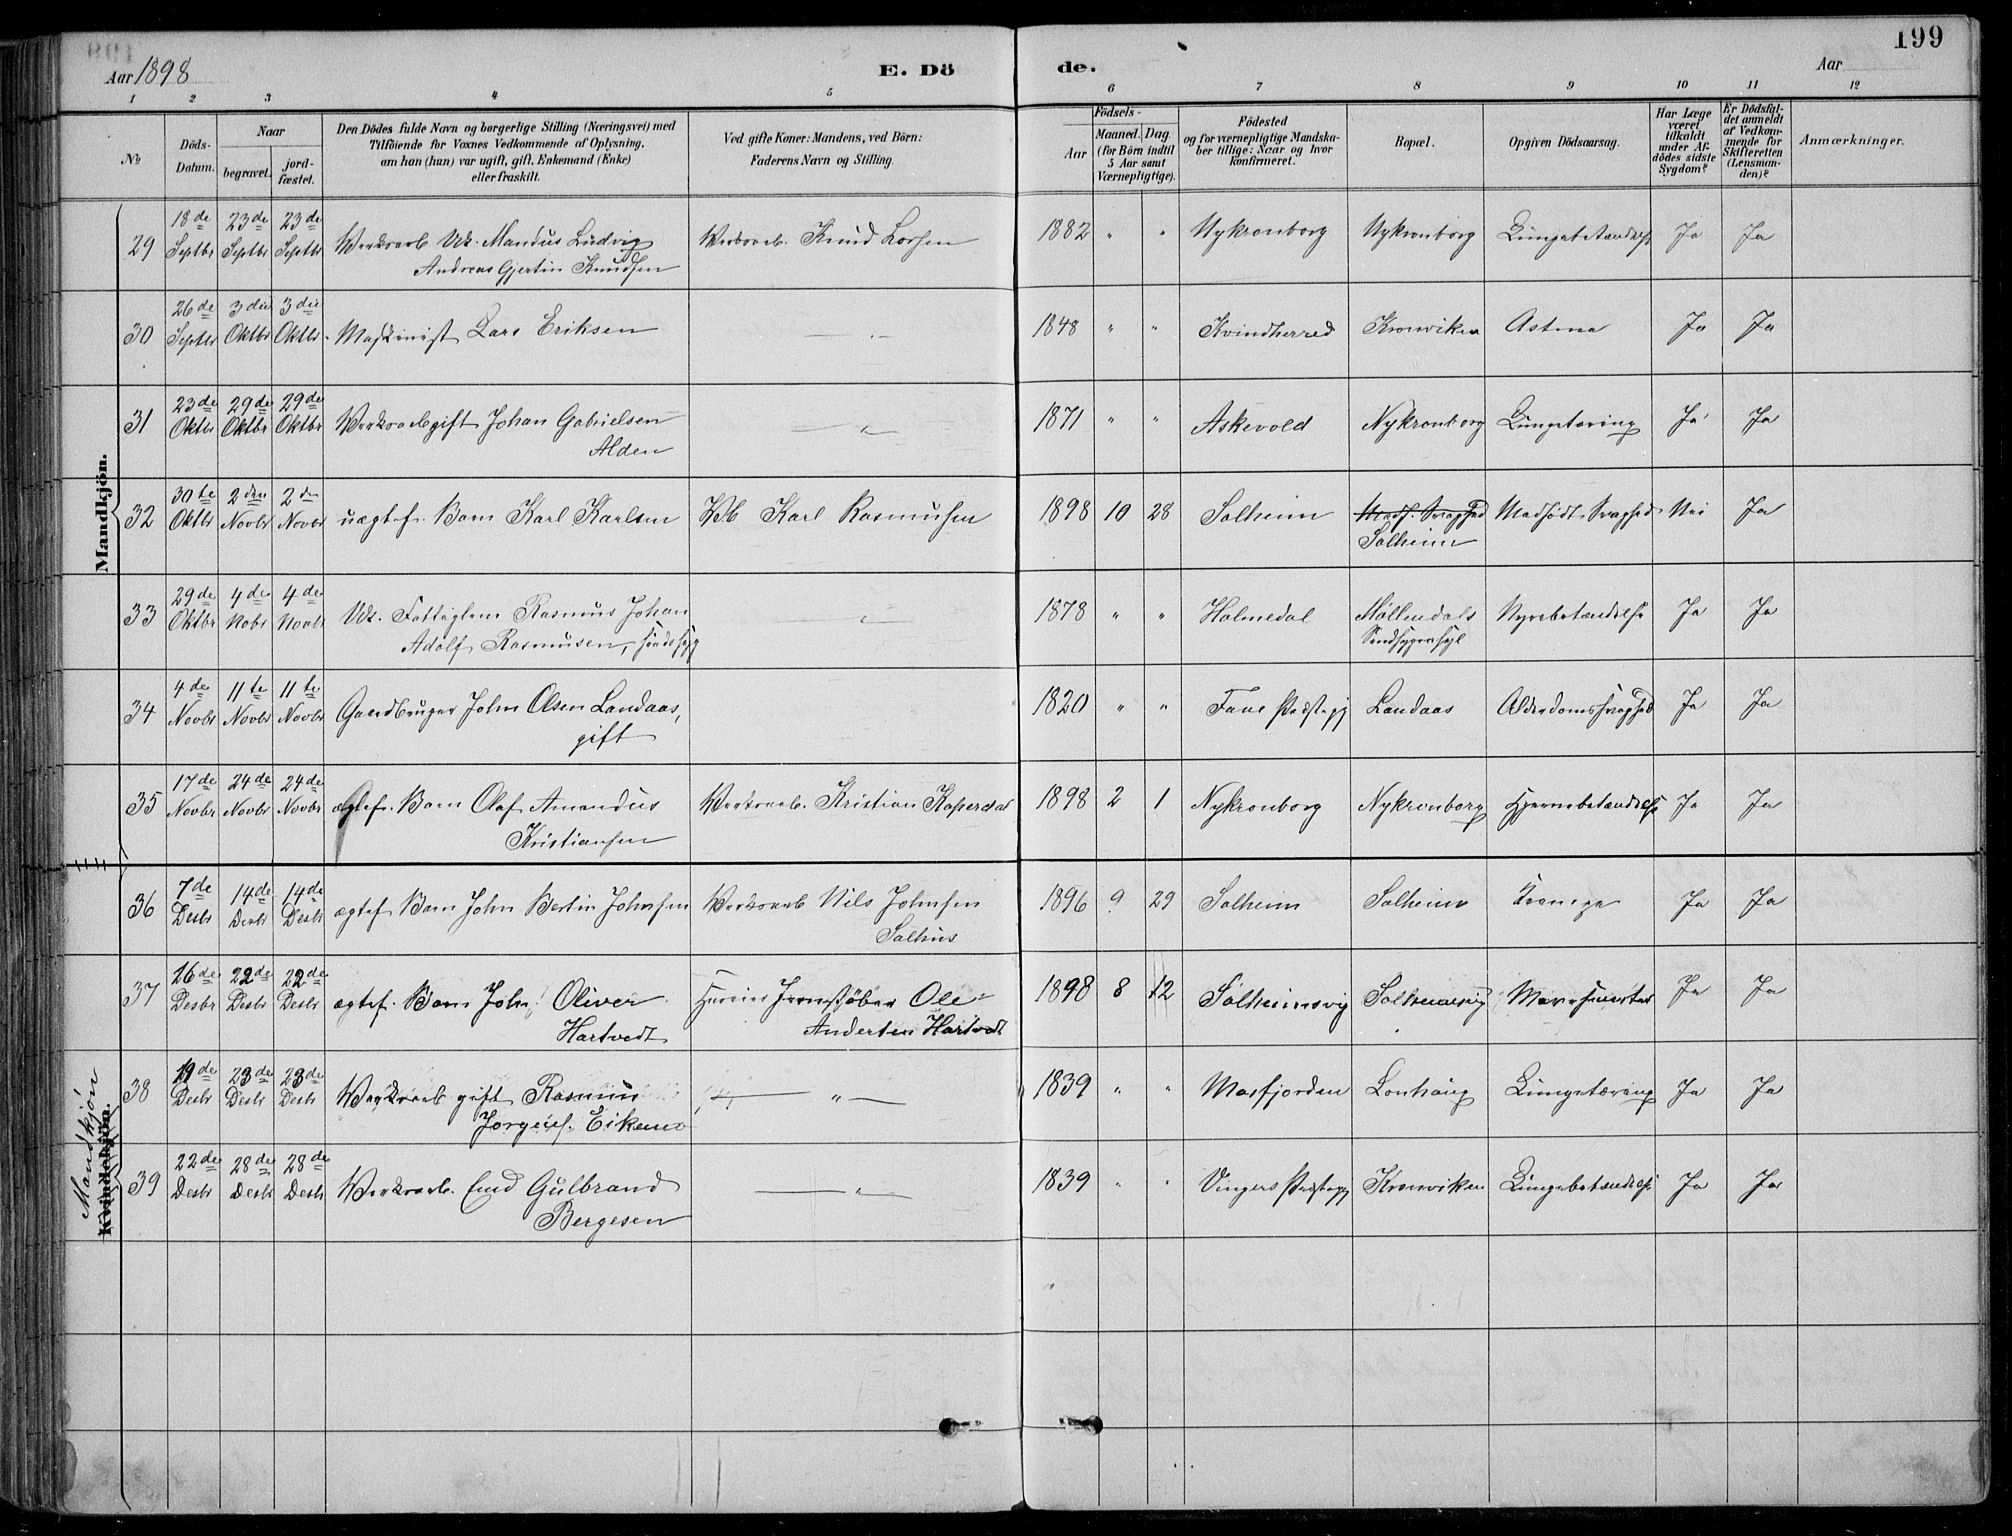 199
Aar 1898
E. Dö
de.
Aar
1 2 3 4 5 6 7 8 9 10 11 12
No
Döds-
Datum.
Naar
begravet.
jord-
fæstet.
Den Dödes fulde Navn og borgerlige Stilling (Næringsvei) med
Tilföiende for Voxnes Vedkommende af Oplysning,
om han (hun) var ugift, gift, Enkemand (Enke)
eller fraskilt.
Ved gifte Koner: Mandens, ved Börn:
Faderens Navn og Stilling.
Födsels-
Aar
Maaned. Dag.
(for Börn indtil
5 Aar samt
Værnepligtige).
Födested
og for værnepligtige Mandska-
ber tillige: Naar og hvor
konfirmeret.
Bopæl.
Opgiven Dödsaarsag.
Har Læge
været
tilkaldt
under Af-
dödes sidste
Sygdom?
Er Dödsfal-
det anmeldt
af Vedkom-
mende for
Skifteretten
(Lensman-
den)?
Anmærkninger.
Mandkjön.
29 18de Septbr 23de Septbr 23de Septbr Værksarb Uk. Mandus Ludvig Værksarb. Knud Larsen 1882 " " Nykronborg Nykronborg Lungebetændelse Ja Ja
Andreas Gjertin Knudsen
30 26de Septbr 3die Oktbr 3die Oktbr Maskinist Lars Eriksen " 1848 " " Kvindherred Kronviken Astma Ja Ja
31 23de Oktbr 29de Oktbr 29de Oktbr Værksarb gift Johan Gabrielsen " 1871 " " Askevold Nykronborg Lungetæring Ja Ja
Alden
32 30te Oktbr 2den Novbr 2den Novbr uægtef. Barn Karl Karlsen Karl Rasmussen 1898 10 28 Solheim Medf. Svaghed Medfødt Svaghed Nei Ja
Solheim
33 29de Oktbr 4de Nobr 4de Novbr Uk. Fattiglem Rasmus Johan " 1878 " " Holmedal Møllendals Nyrebetændelse Ja Ja
Adolf Rasmussen, sindssyg Sindsygeasyl
34 4de Novbr 11te Novbr 11te Novbr Gaardbruger John Olsen Landaas, 1820 " " Fane Præstegj Landaas Alderdomssvaghed Ja Ja
gift
35 17de Novbr 24de Novbr 24de Novbr ægtef. Barn Olaf Amandus Værksarb. Kristian Kasperdal 1898 2 1 Nykronborg Nykronborg Hjernebetændelse Ja Ja
Kristiansen
36 7de Desbr 14de Desbr 14de Desbr ægtef Barn John Bertin Johnsen Værksarb Nils Johnsen 1896 9 29 Solheim Solheim Ja Ja
Salhus
37 16de Desbr 22de Desbr 22de Desbr ægtef. Barn John Oliver Jernstøber Ole 1898 8 12 Solheimsvig Solheimsvig Mavesmerter Ja Ja
Hartvedt Andersen Hartvedt
Mandkjön
Kvindekjön.
38 19de Desbr 23de Desbr 23de Desbr Værksarb gift Rasmus " 1839 " " Masfjorden Lonhaug Lungetæring Ja Ja
Jørgens. Eikemo
39 22de Desbr 28de Desbr 28de Desbr Værksarb. Emd Gulbrand " 1839 " " Vingers Præstegj Kronviken Lungebetændelse Ja Ja
Bergesen